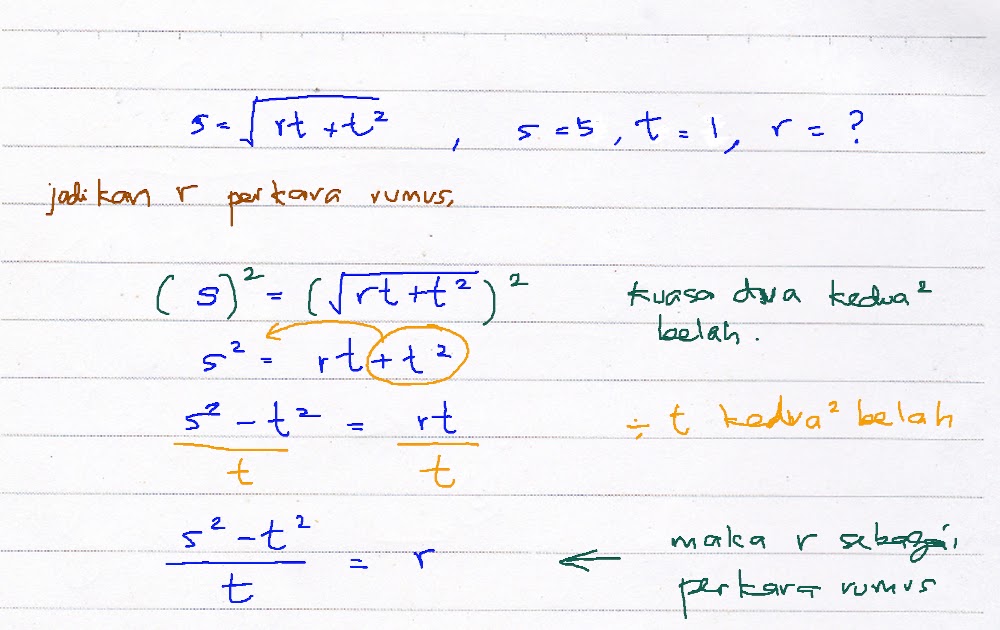 s = √(rt + t²) , s = 5 , t = 1 , r = ?
jadikan r perkara rumus,
( s )² = ( √(rt + t²) )² kuasa dua kedua² belah.
s² = rt + t²
s² - t² / t = rt / t ÷ t kedua² belah
s² - t² / t = r ← maka r sebagai perkara rumus